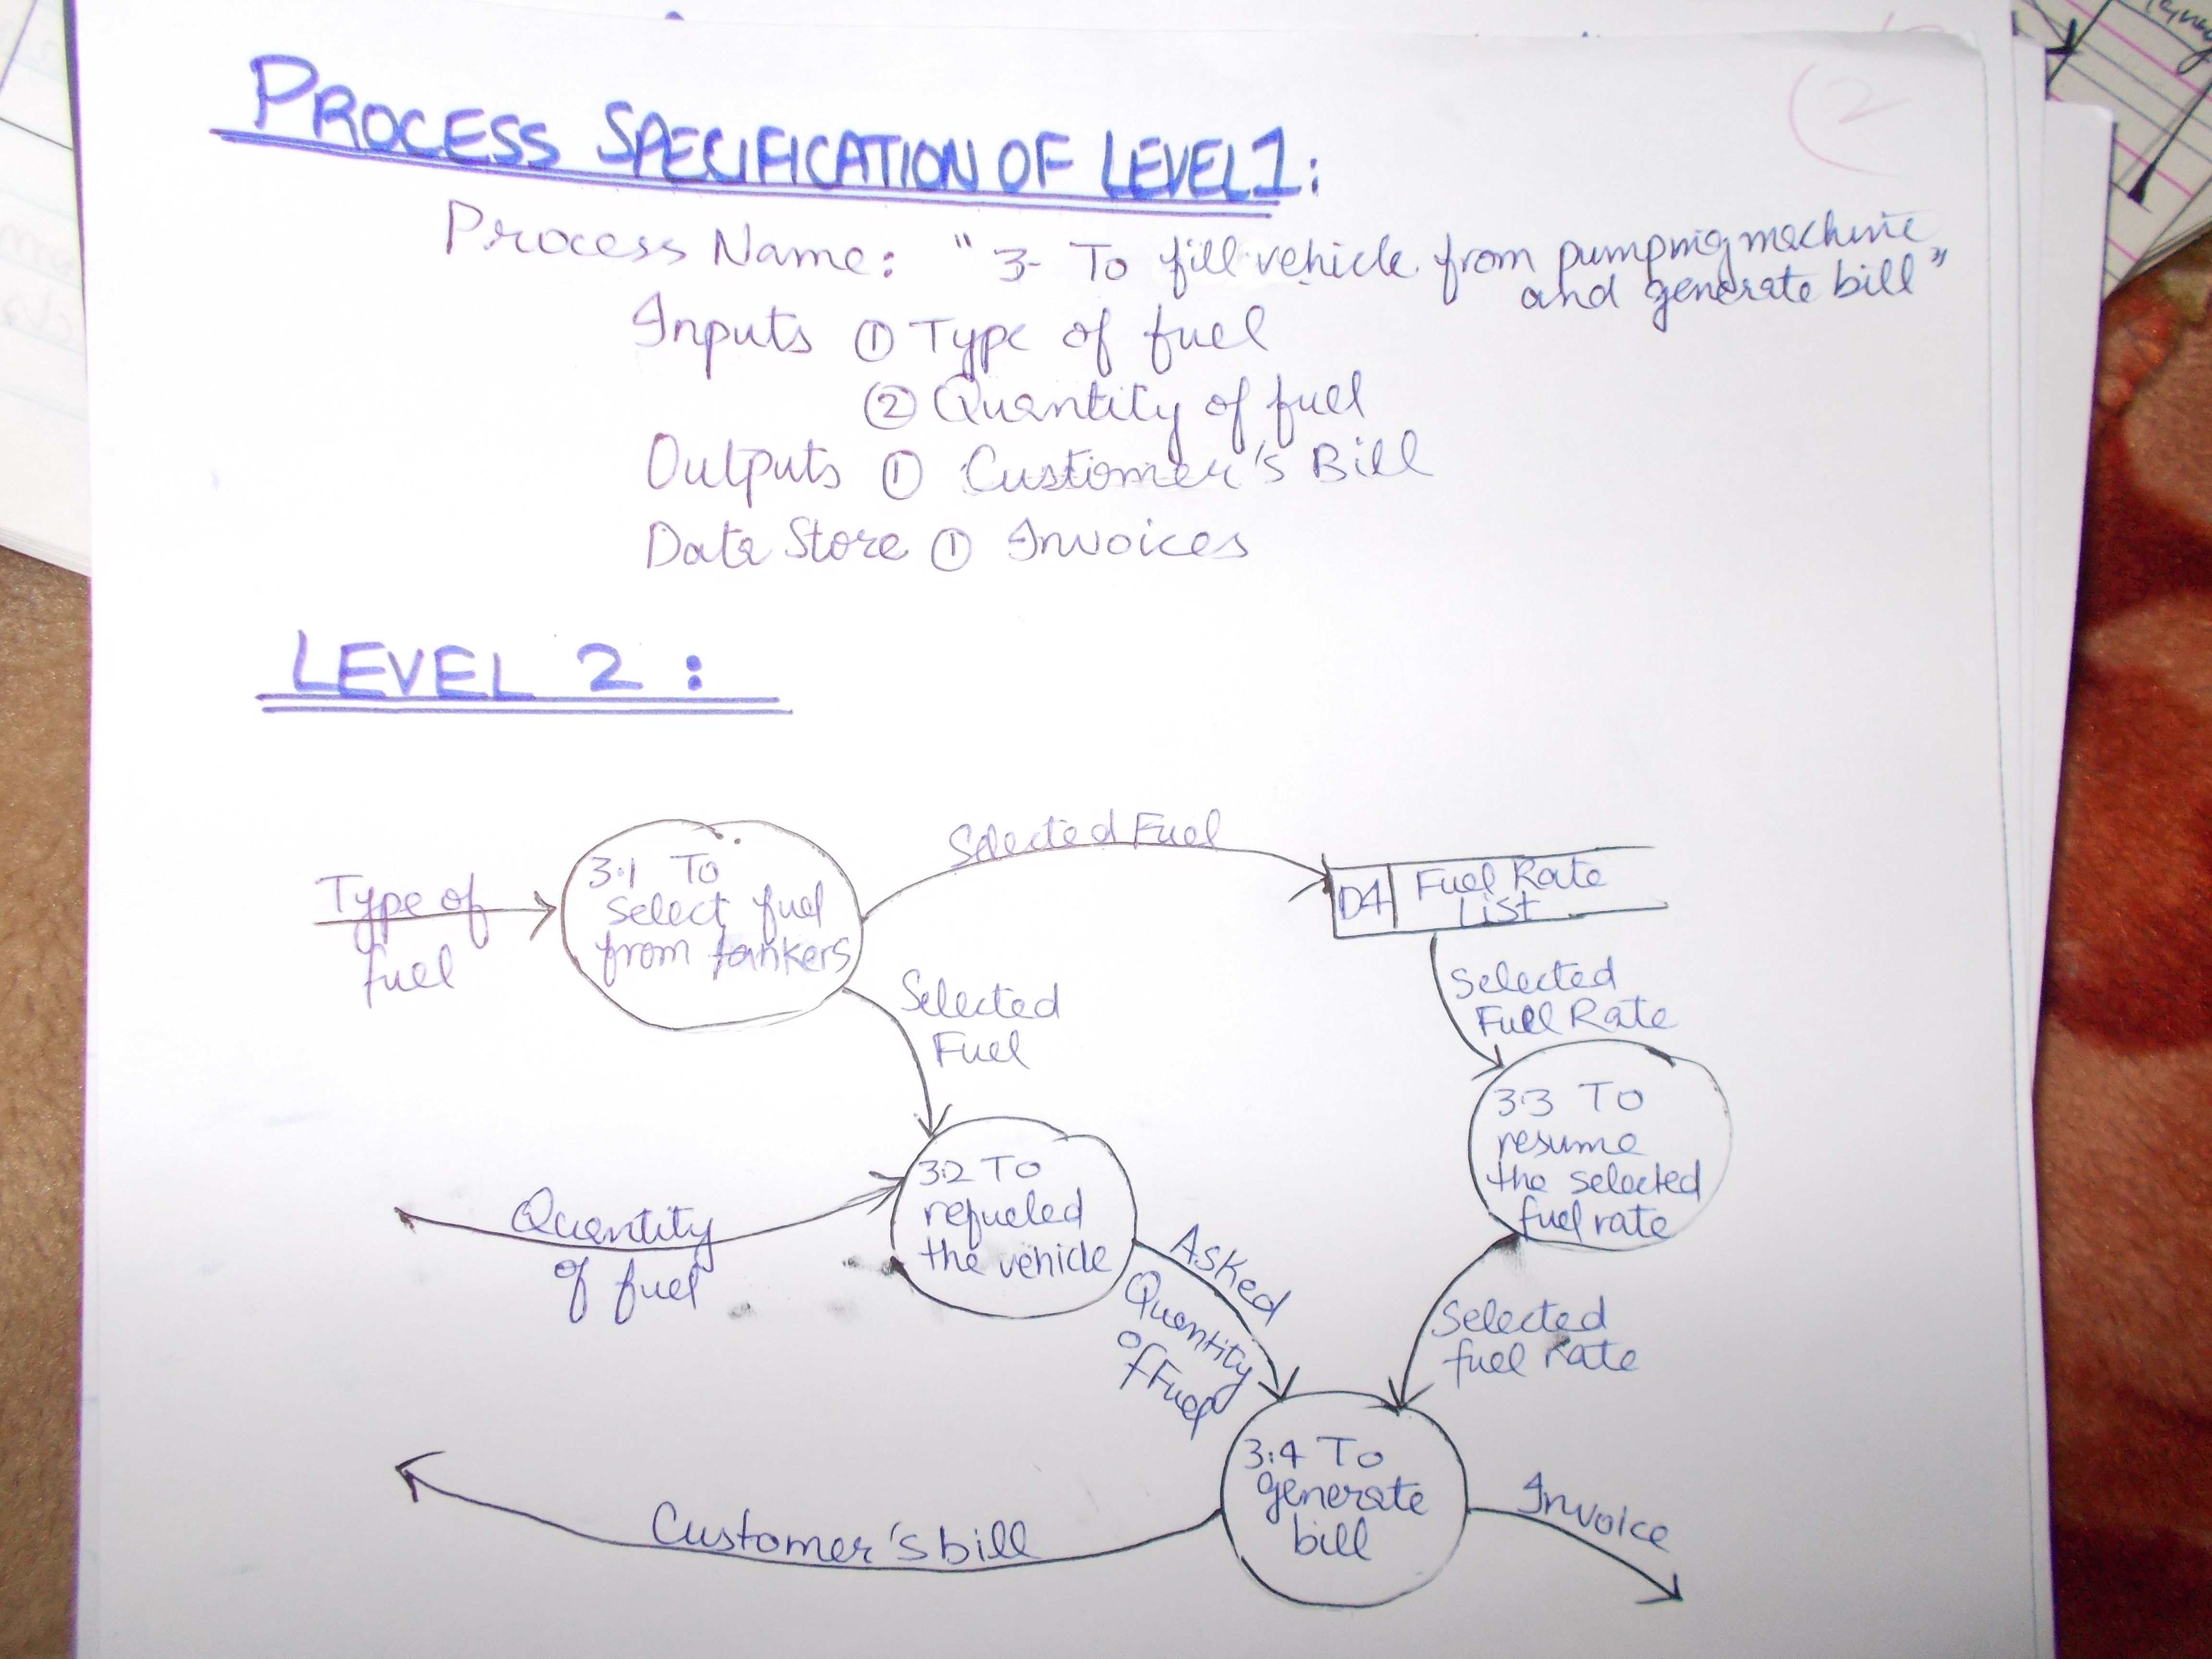 (2
PROCESS SPECIFICATION OF LEVEL 1:
Process Name: "3- To fill vehicle from pumping machine
and generate bill"
Inputs ① Type of fuel
② Quantity of fuel
Outputs ① Customer's Bill
Data Store ① Invoices
LEVEL 2 :
Type of
fuel
3.1 To
select fuel
from tankers
Selected Fuel
D4 Fuel Rate
List
Selected
Fuel
Selected
Fuel Rate
3.3 To
resume
the selected
fuel rate
Quantity
of fuel
3.2 To
refueled
the vehicle
Asked
Quantity
of Fuel
Selected
fuel rate
3.4 To
generate
bill
Customer's bill
Invoice